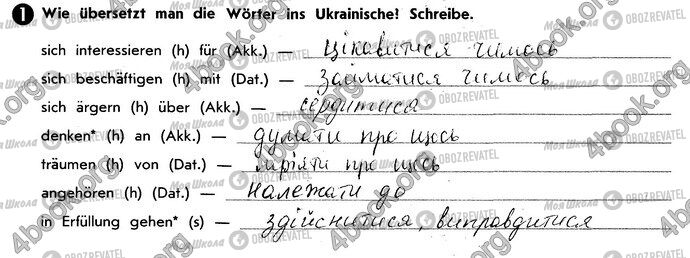 1 Wie übersetzt man die Wörter ins Ukrainische? Schreibe.
sich interessieren (h) für (Akk.) — цікавитися чимось
sich beschäftigen (h) mit (Dat.) — займатися чимось
sich ärgern (h) über (Akk.) — сердитися
denken* (h) an (Akk.) — думати про щось
träumen (h) von (Dat.) — мріяти про щось
angehören (h) (Dat.) — належати до
in Erfüllung gehen* (s) — здійснитися, виправдитися